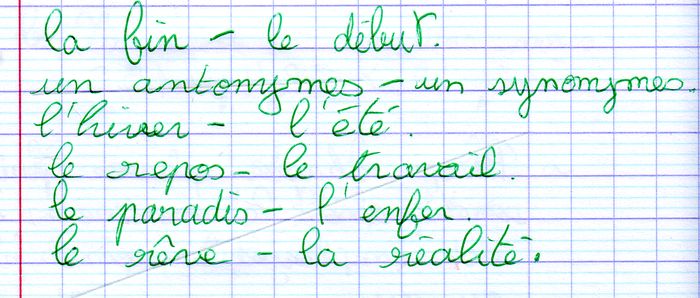 la fin - le début.
un antonymes - un synonymes.
l'hiver - l'été.
le repos - le travail.
le paradis - l'enfer.
le rêve - la réalité.